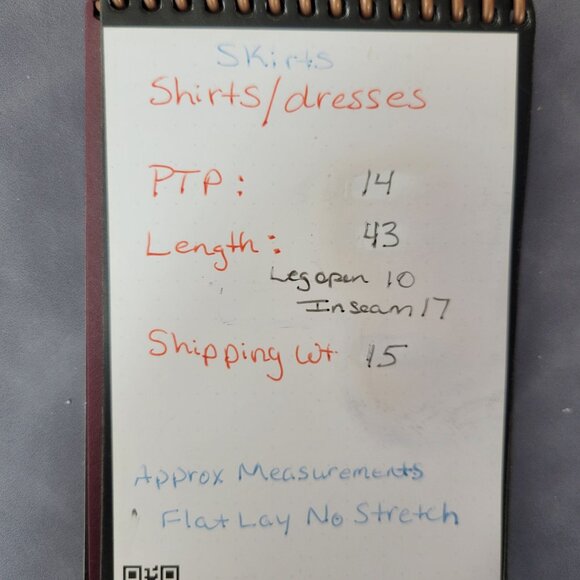 Skirts
Shirts/dresses
PTP: 14
Length: 43
Leg open 10
Inseam 17
Shipping Wt. 15
Approx Measurements
Flat Lay No Stretch